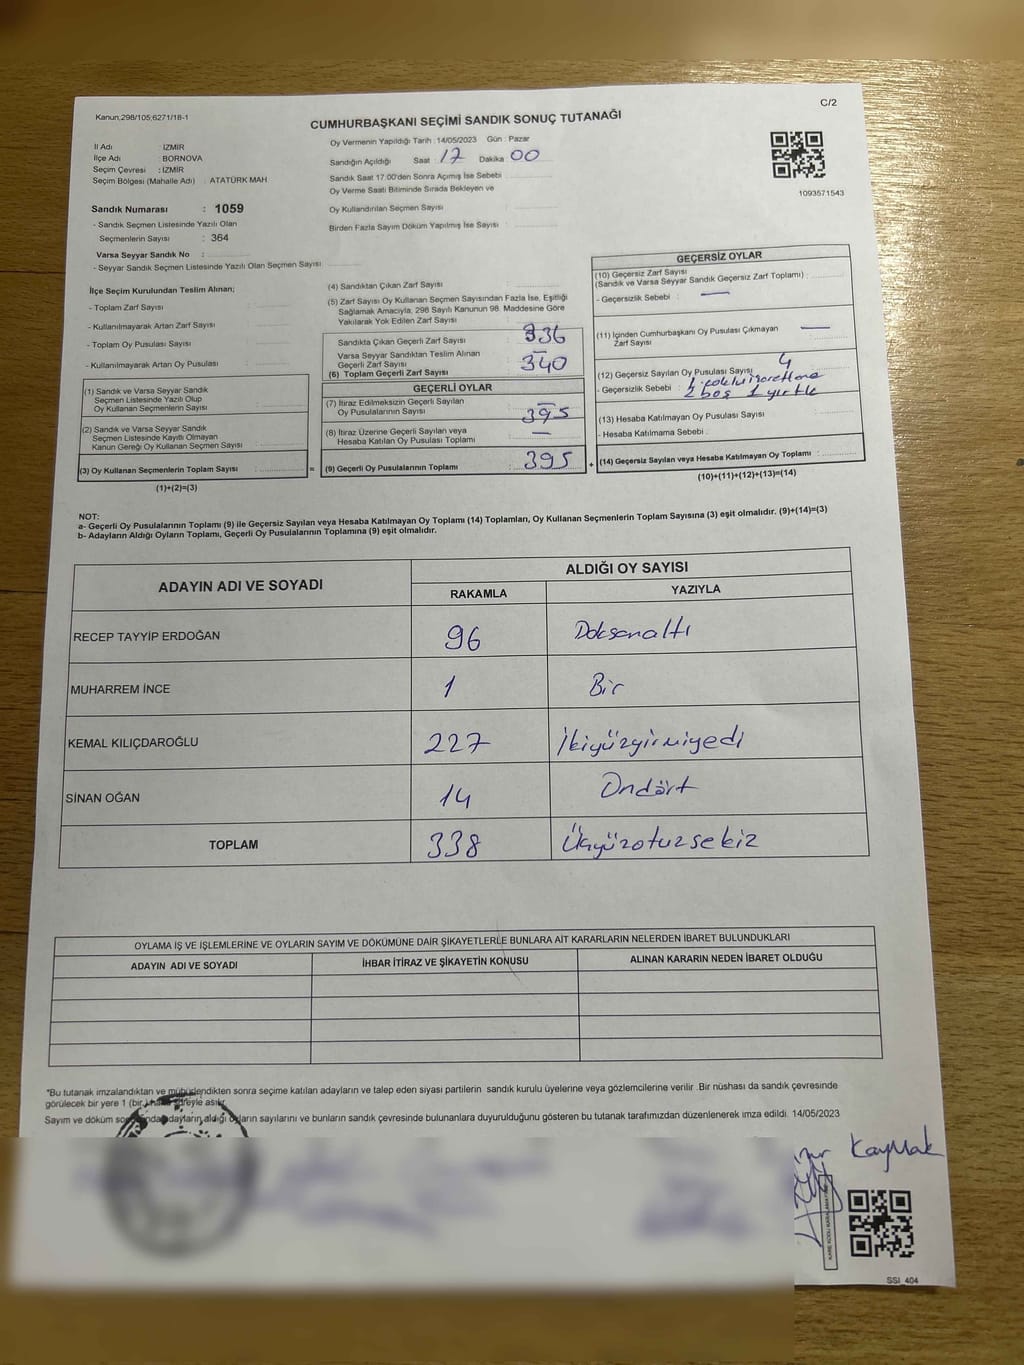 Kanun;298/105;6271/18-1
C/2
CUMHURBAŞKANI SEÇİMİ SANDIK SONUÇ TUTANAĞI
İl Adı : İZMİR
İlçe Adı : BORNOVA
Seçim Çevresi : İZMİR
Seçim Bölgesi (Mahalle Adı) : ATATÜRK MAH
Sandık Numarası : 1059
- Sandık Seçmen Listesinde Yazılı Olan
Seçmenlerin Sayısı : 364
Varsa Seyyar Sandık No :
- Seyyar Sandık Seçmen Listesinde Yazılı Olan Seçmen Sayısı :
Oy Vermenin Yapıldığı Tarih : 14/05/2023 Gün : Pazar
Sandığın Açıldığı Saat : 17 Dakika : 00
Sandık Saat 17:00'den Sonra Açımış İse Sebebi :
Oy Verme Saati Bitiminde Sırada Bekleyen ve
Oy Kullandırılan Seçmen Sayısı :
Birden Fazla Sayım Döküm Yapılmış İse Sayısı :
1093571543
İlçe Seçim Kurulundan Teslim Alınan;
- Toplam Zarf Sayısı :
- Kullanılmayarak Artan Zarf Sayısı :
- Toplam Oy Pusulası Sayısı :
- Kullanılmayarak Artan Oy Pusulası :
(1) Sandık ve Varsa Seyyar Sandık
Seçmen Listesinde Yazılı Olup
Oy Kullanan Seçmenlerin Sayısı :
(2) Sandık ve Varsa Seyyar Sandık
Seçmen Listesinde Kayıtlı Olmayan
Kanun Gereği Oy Kullanan Seçmen Sayısı :
(3) Oy Kullanan Seçmenlerin Toplam Sayısı : =
(1)+(2)=(3)
(4) Sandıktan Çıkan Zarf Sayısı :
(5) Zarf Sayısı Oy Kullanan Seçmen Sayısından Fazla İse, Eşitliği
Sağlamak Amacıyla, 298 Sayılı Kanunun 98. Maddesine Göre
Yakılarak Yok Edilen Zarf Sayısı :
Sandıkta Çıkan Geçerli Zarf Sayısı : 336
Varsa Seyyar Sandıktan Teslim Alınan
Geçerli Zarf Sayısı : —
(6) Toplam Geçerli Zarf Sayısı : 340
GEÇERLİ OYLAR
(7) İtiraz Edilmeksizin Geçerli Sayılan
Oy Pusulalarının Sayısı : 395
(8) İtiraz Üzerine Geçerli Sayılan veya
Hesaba Katılan Oy Pusulası Toplamı : —
(9) Geçerli Oy Pusulalarının Toplamı : 395 +
GEÇERSİZ OYLAR
(10) Geçersiz Zarf Sayısı
(Sandık ve Varsa Seyyar Sandık Geçersiz Zarf Toplamı) :
- Geçersizlik Sebebi : —
(11) İçinden Cumhurbaşkanı Oy Pusulası Çıkmayan
Zarf Sayısı : —
(12) Geçersiz Sayılan Oy Pusulası Sayısı : 4
- Geçersizlik Sebebi : 1 çoklu işaretleme
2 boş 1 yırtık
(13) Hesaba Katılmayan Oy Pusulası Sayısı :
- Hesaba Katılmama Sebebi :
(14) Geçersiz Sayılan veya Hesaba Katılmayan Oy Toplamı :
(10)+(11)+(12)+(13)=(14)
NOT:
a- Geçerli Oy Pusulalarının Toplamı (9) ile Geçersiz Sayılan veya Hesaba Katılmayan Oy Toplamı (14) Toplamları, Oy Kullanan Seçmenlerin Toplam Sayısına (3) eşit olmalıdır. (9)+(14)=(3)
b- Adayların Aldığı Oyların Toplamı, Geçerli Oy Pusulalarının Toplamına (9) eşit olmalıdır.
ADAYIN ADI VE SOYADI ALDIĞI OY SAYISI
RAKAMLA YAZIYLA
RECEP TAYYİP ERDOĞAN 96 Doksanaltı
MUHARREM İNCE 1 Bir
KEMAL KILIÇDAROĞLU 227 İkiyüzyirmiyedi
SİNAN OĞAN 14 Ondört
TOPLAM 338 Üçyüzotuzsekiz
OYLAMA İŞ VE İŞLEMLERİNE VE OYLARIN SAYIM VE DÖKÜMÜNE DAİR ŞİKAYETLERLE BUNLARA AİT KARARLARIN NELERDEN İBARET BULUNDUKLARI
ADAYIN ADI VE SOYADI İHBAR İTİRAZ VE ŞİKAYETİN KONUSU ALINAN KARARIN NEDEN İBARET OLDUĞU
*Bu tutanak imzalandıktan ve mühürlendikten sonra seçime katılan adayların ve talep eden siyasi partilerin sandık kurulu üyelerine veya gözlemcilerine verilir .Bir nüshası da sandık çevresinde
görülecek bir yere 1 (bir) hafta süreyle asılır.
Sayım ve döküm sonunda adayların aldığı oyların sayılarını ve bunların sandık çevresinde bulunanlara duyurulduğunu gösteren bu tutanak tarafımızdan düzenlenerek imza edildi. 14/05/2023
Kaymak
SSI_404